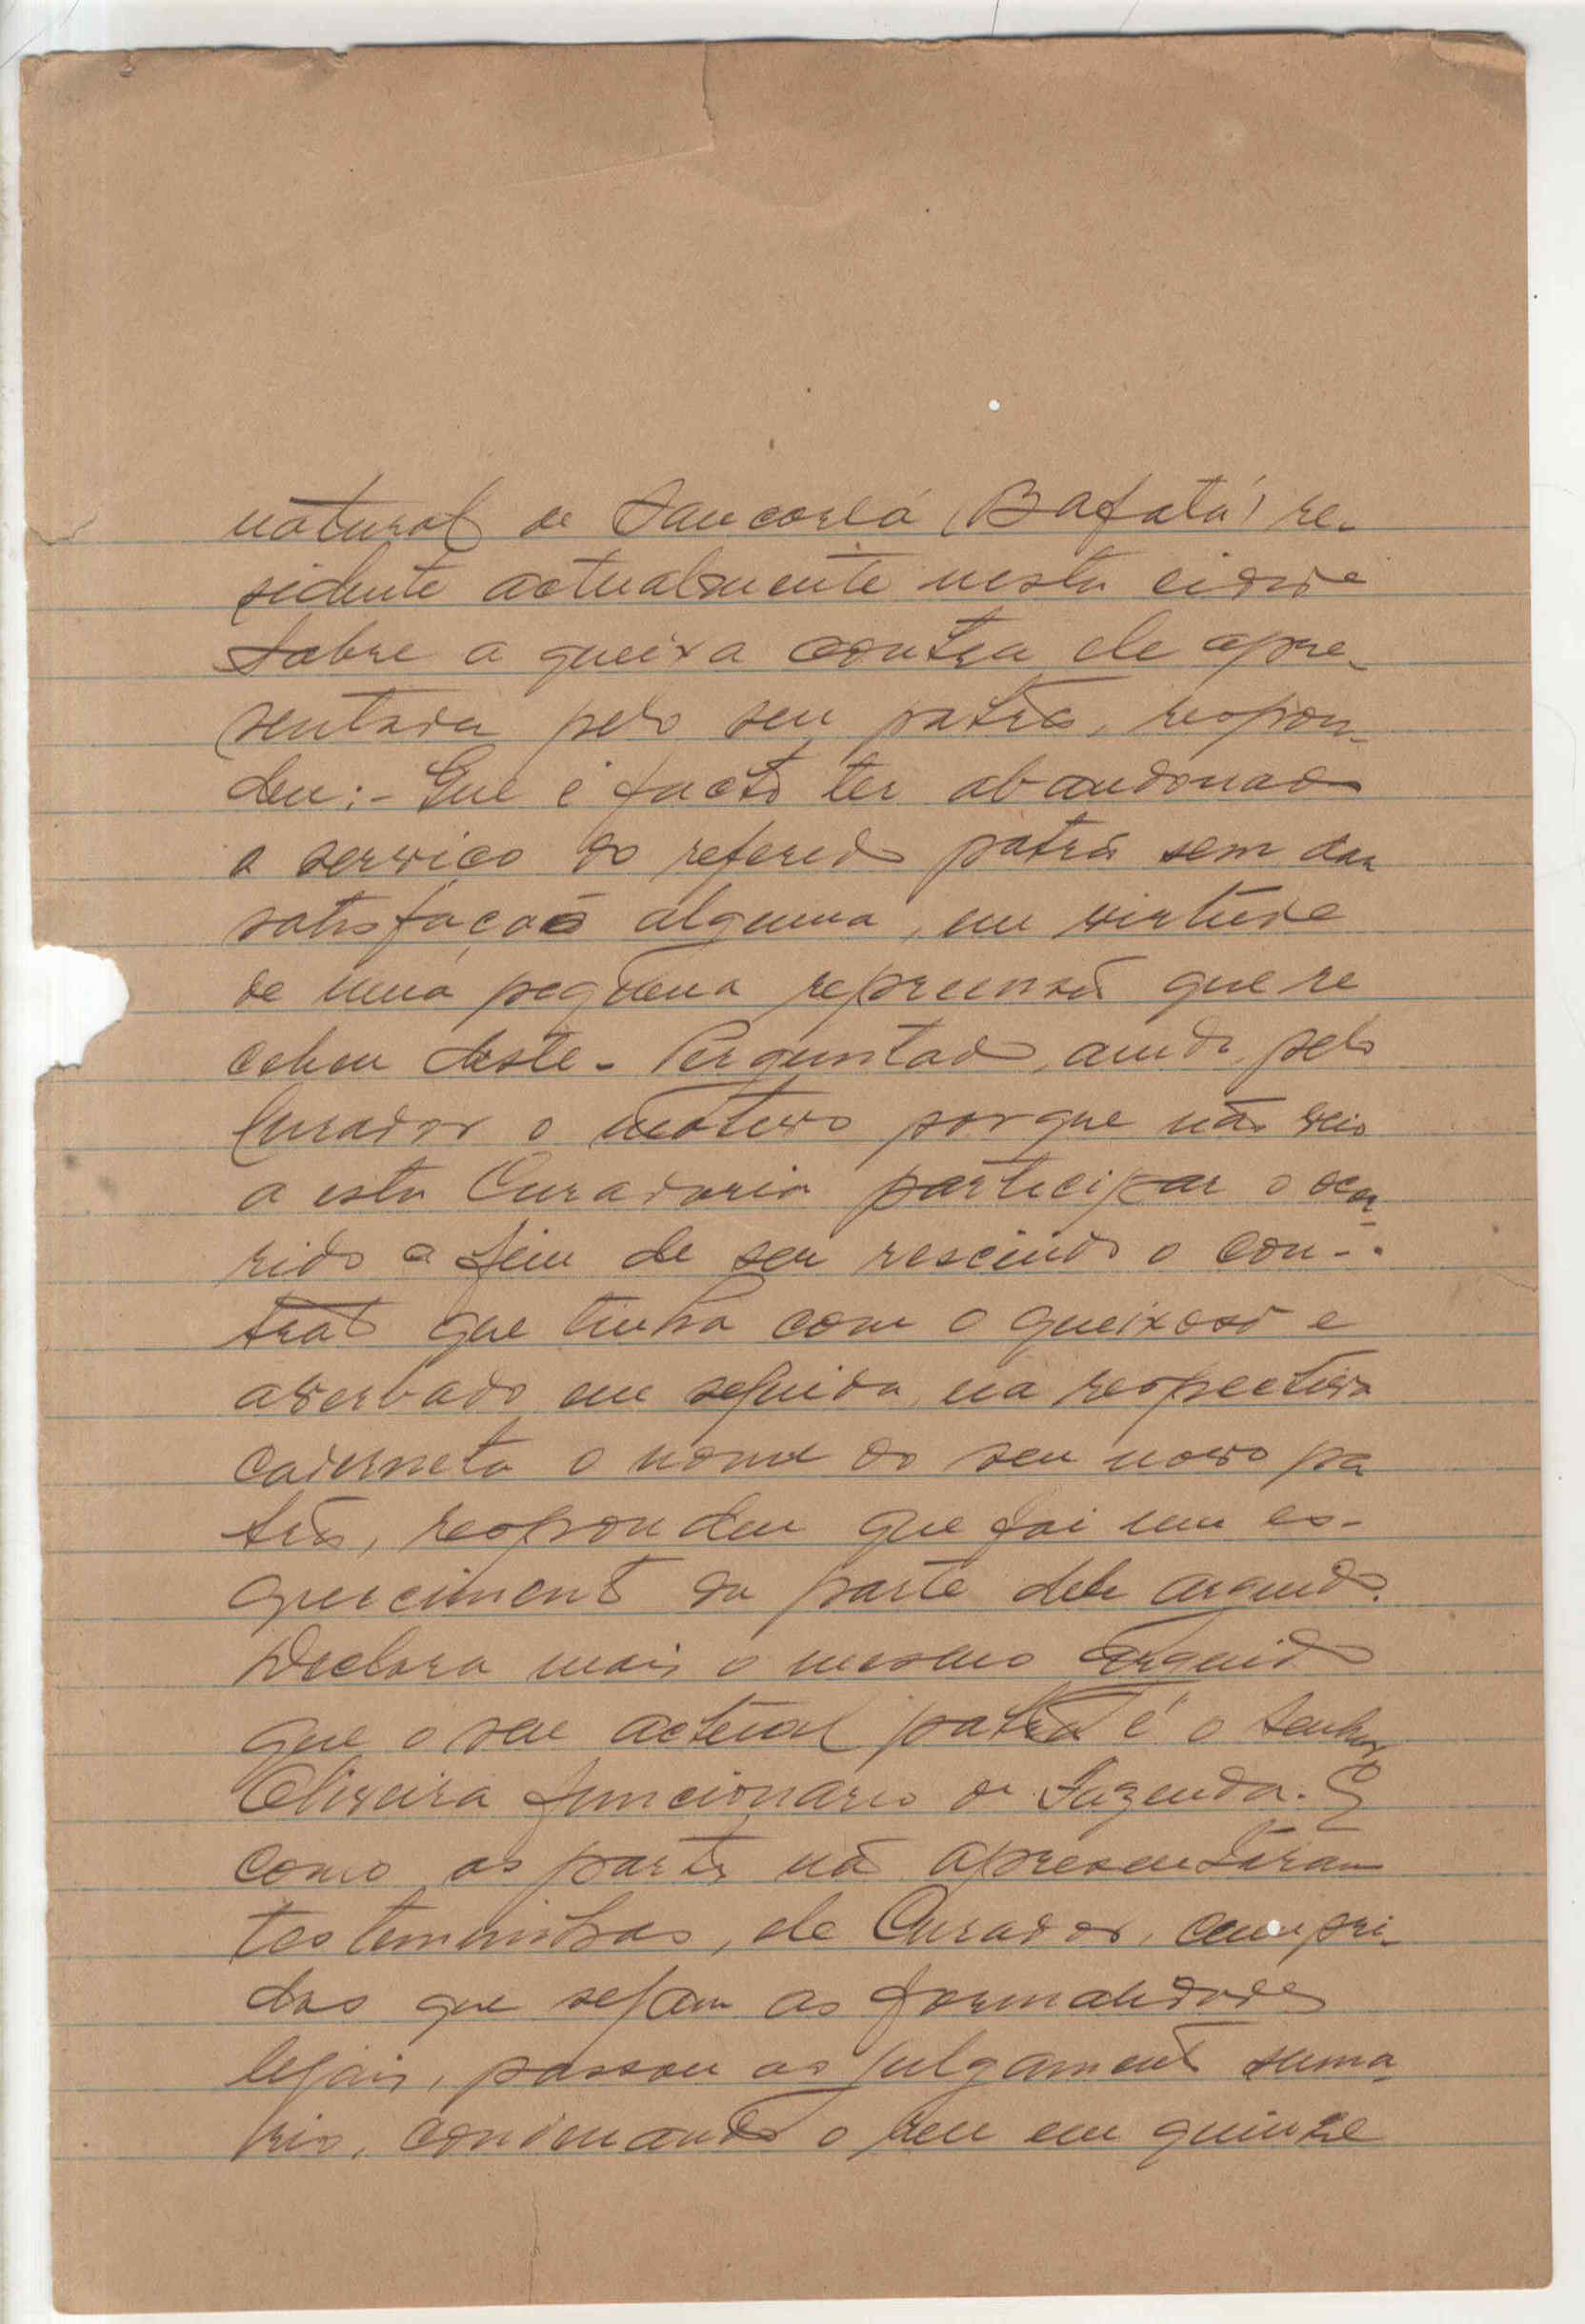 natural de Sancorlá (Bafatá) re-
sidente actualmente nesta cidade
sobre a queixa contra ele apre-
sentada pelo seu patrão, respon-
deu:- Que é facto ter abandonado
o serviço do referido patrão sem dar
satisfação alguma, em virtude
de uma pequena reprensão que re
cebeu deste - Perguntado, ainda, pelo
Curador o motivo porque não veio
a esta Curadoria participar o ocor-
rido a fim de ser rescindido o con-
trato que tinha com o queixoso e
averbado em seguida, na respectiva
caderneta o nome do seu novo pa
trão, respondeu que foi um es-
quecimento da parte dele arguido.
Declara mais o mesmo arguido
que o seu actual patrão é o Senhor
Oliveira funcionario de Fazenda. E
como as partes não apresentaram
testemunhas, ele Curador, cumpri-
das que sejam as formalidades
legais, passou ao julgamento suma-
rio, condenando o reu em quinze